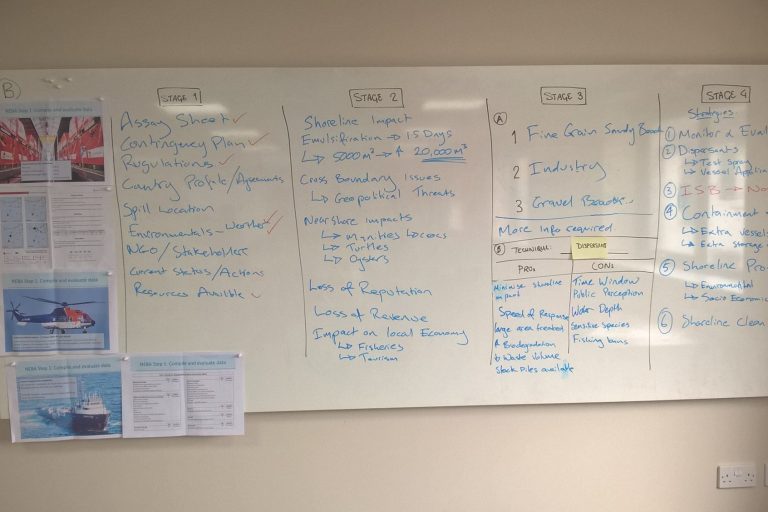 B
NEBA Step 1: Compile and evaluate data
NEBA Step 1: Compile and evaluate data
NEBA Step 1: Compile and evaluate data
NEBA Step 1: Compile and evaluate data
STAGE 1
Assay Sheet ✓
Contingency Plan ✓
Regulations ✓
Country Profile/Agreements
Spill Location
Environmentals - Weather ✓
NGO/Stakeholders
Current Status/Actions
Resources Availble ✓
STAGE 2
Shoreline Impact
Emulsification → 15 Days
↳ 5000m³ → ↑ 20,000m³
Cross Boundary Issues
↳ Geopolitical Threats
Nearshore impacts
↳ Turtles
↳ Oysters
Loss of Reputation
Loss of Revenue
Impact on local Economy
↳ Fisheries
↳ Tourism
STAGE 3
A
1 Fine Grain Sandy Beach
2 Industry
3 Gravel Beaches
More Info required
B TECHNIQUE: DISPERSANT
PROS CONS
Minimise shoreline impact
Speed of Response
large area treated
↑ Biodegradation
↓ Waste Volume
Stock Piles available
Time Window
Public Perception
Water Depth
Sensitive Species
Fishing bans
STAGE 4
Strategies
1 Monitor & Eval
2 Dispersants
↳ Test Spray
↳ Vessel Applic
3 ISB → No
4 Containment
↳ Extra vessels
↳ Extra storage
5 Shoreline Pro
↳ Environmental
↳ Socio Economic
6 Shoreline Clean